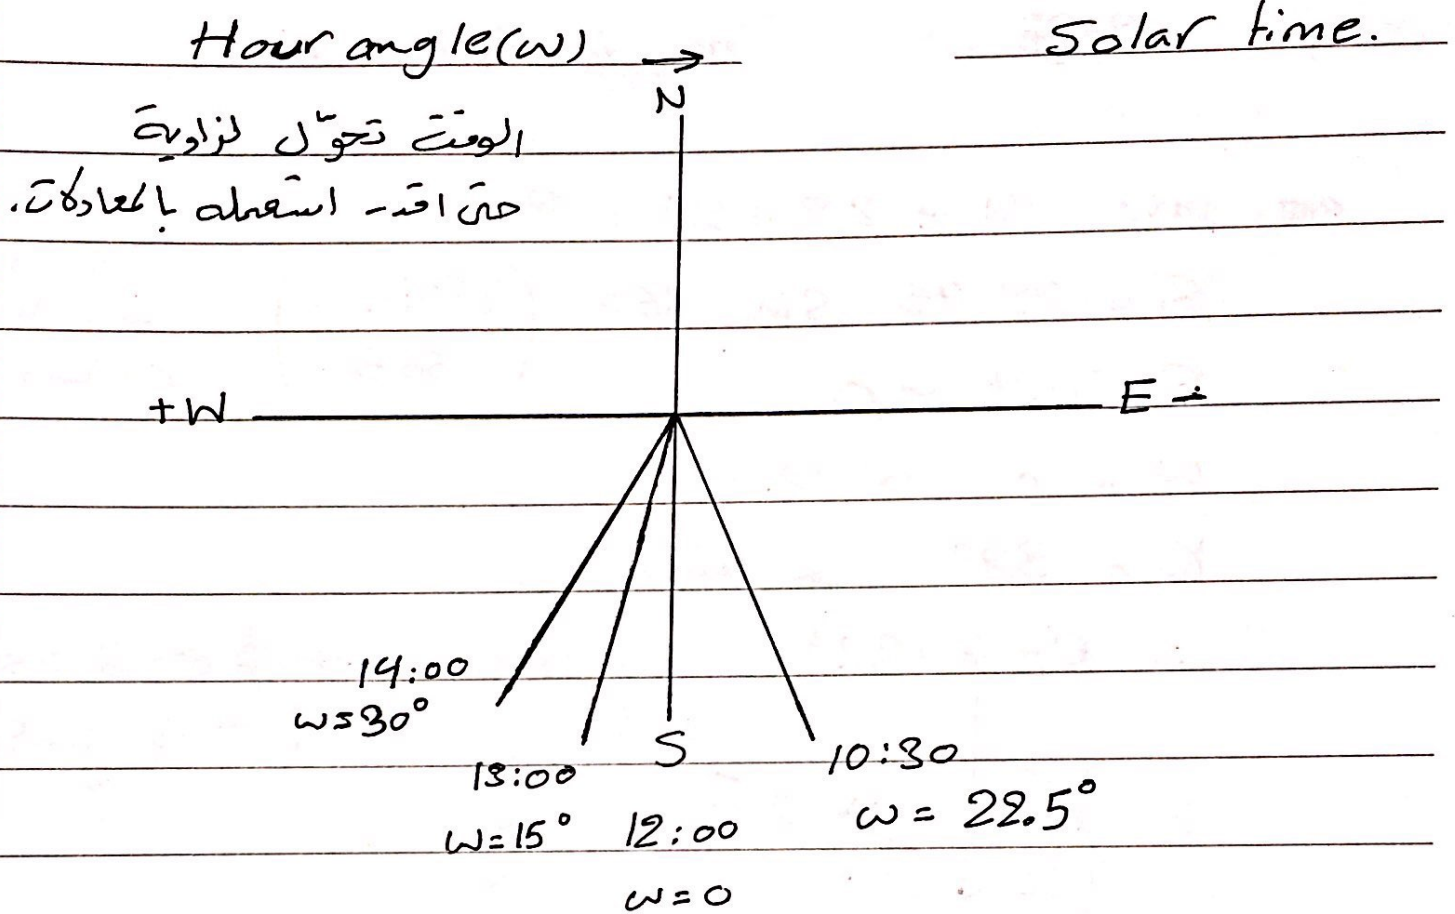 Hour angle(ω) → Solar time.
الوقت تحوّل لزاوية
حتى اقدر استعمله بالمعادلات.
N
+W
E -
14:00
ω=30°
13:00
ω=15°
S
12:00
ω=0
10:30
ω= 22.5°